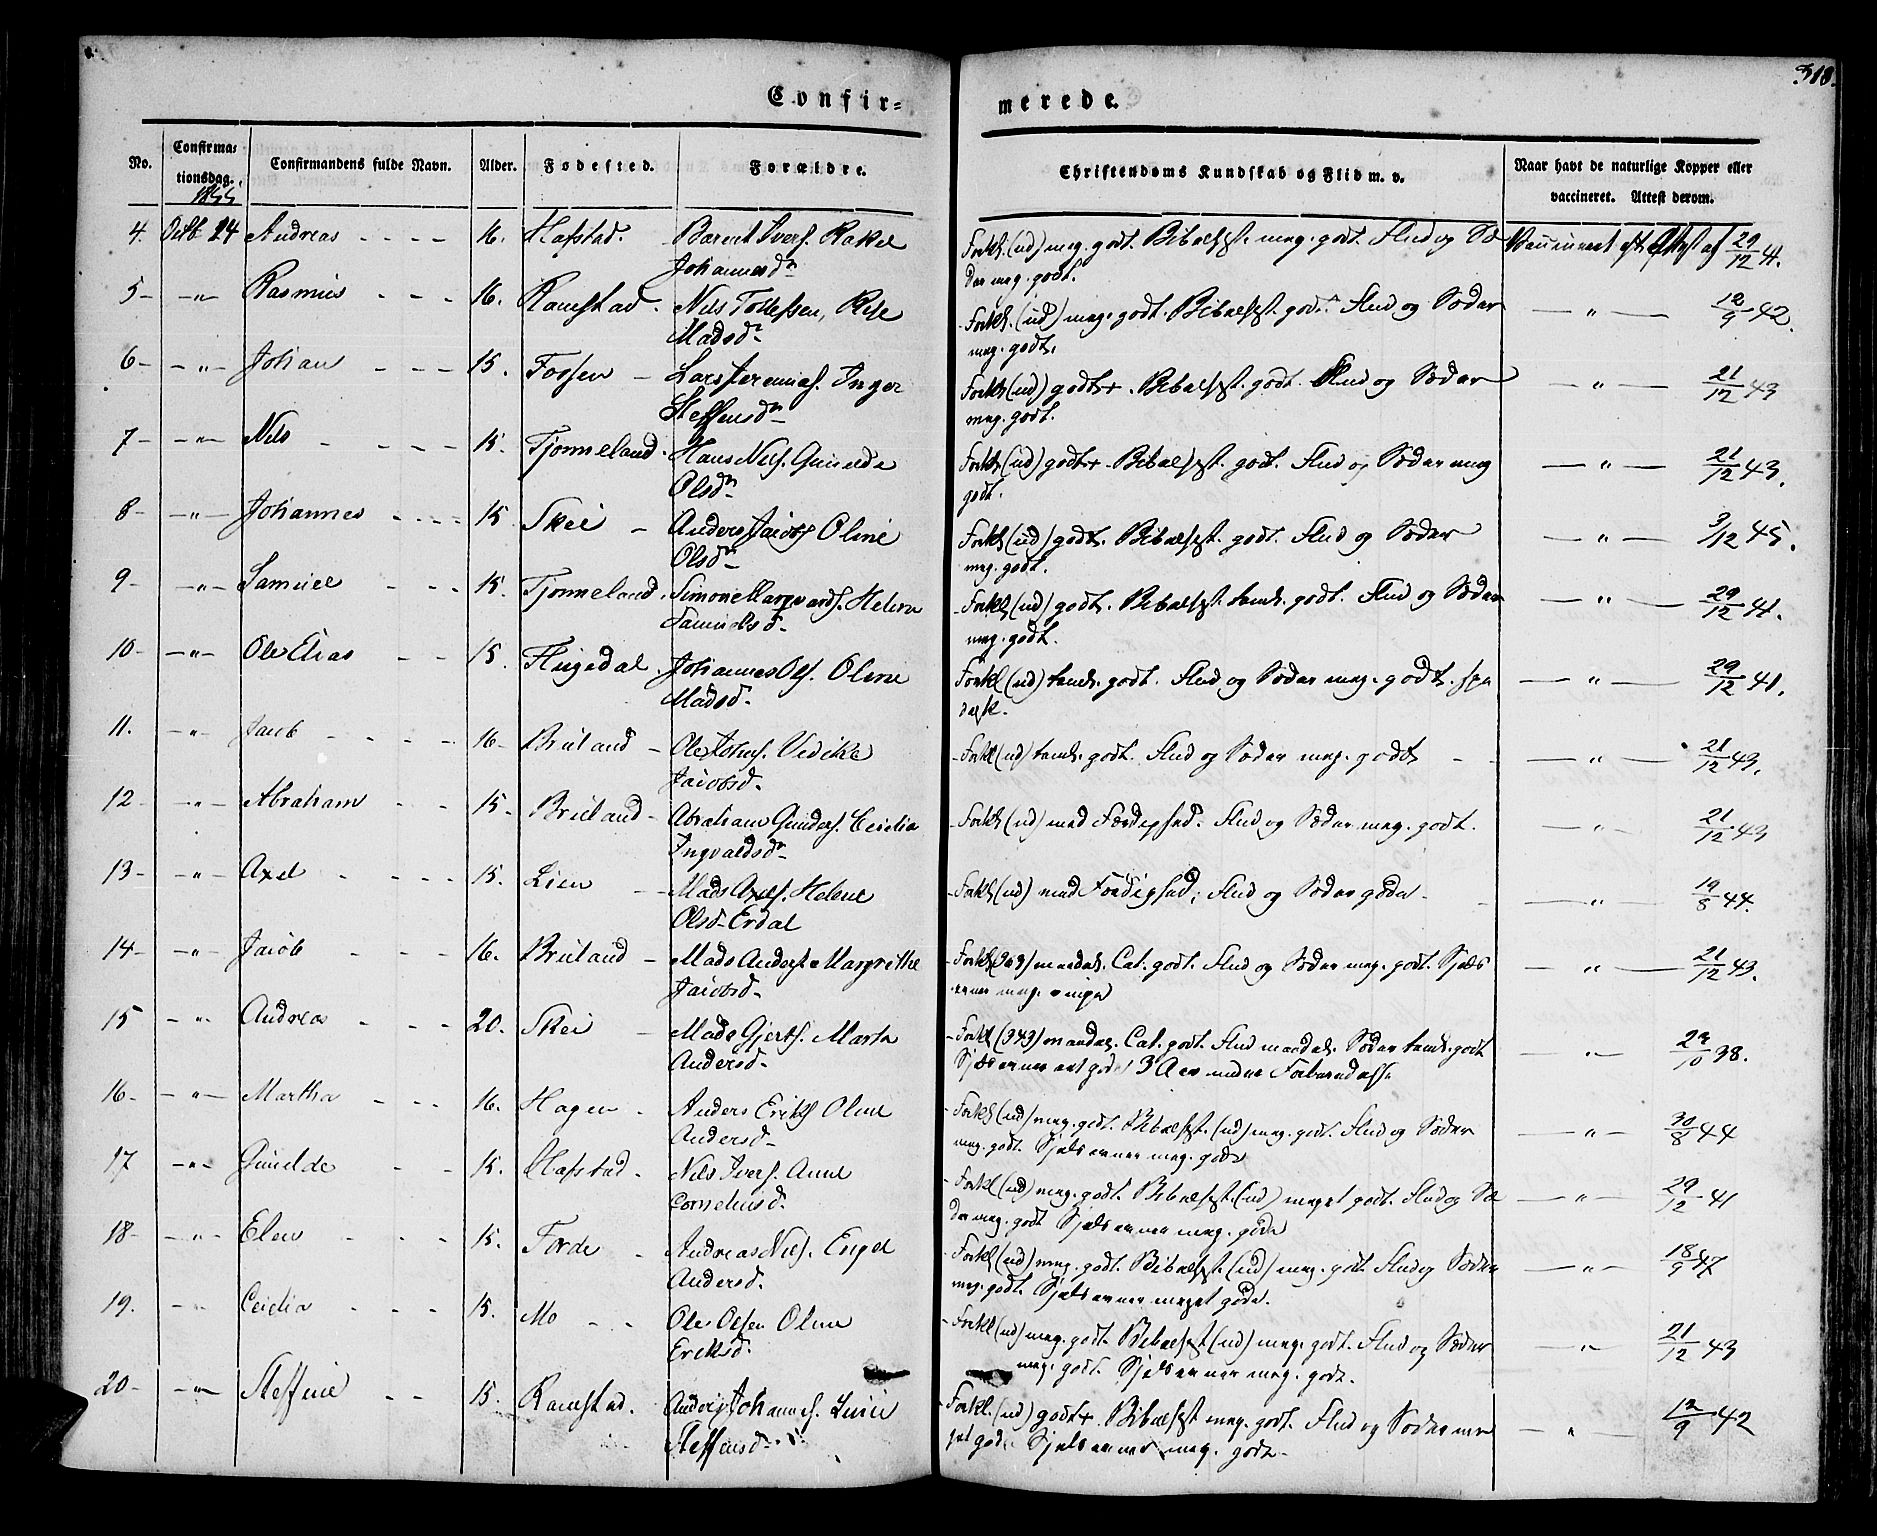 Confir=
merede.
318.
No.
Confirma=
tionsdag.
1855.
Confirmandens fulde Navn.
Alder.
Fødested.
Forældre.
Christendoms Kundskab og Flid m. v.
Naar havt de naturlige Kopper eller
vaccineret. Attest derom.
4. Octb 24 Andreas 16. Hafstad. Barent Ivers. Rakel
Johannesdn
Forkl. (ud) meg. godt. Bibelhist. meg. godt. Flid og Sæ
der meg. godt.
Vaccineret eft. Attest af 29/12 41.
5 - " - Rasmus 16. Ramstad. Nils Tollefsen,
Madsdn
Forkl. (ud) meg. godt. Bibelhist. godt. Flid og Sæder
meg. godt.
- " - 12/9 42.
6 - " - Johan 15. Fossen Lars Jeremias. Inger
Steffensdn
Forkl. (ud) godt+. Bibelhist. godt. Flid og Sæder
meg. godt.
- " - 21/12 43
7 - " - Nils 15. Tjønneland. Hans Nils. Gunilde
Olsdn
Forkl. (ud) godt+. Bibelhist. godt. Flid og Sæder meg
godt.
- " - 21/12 43.
8 - " - Johannes 15 Skei Anders Jacobs Oline
Olsdn
Forkl. (ud) godt. Bibelhist. godt. Flid og Sæder
meg. godt.
- " - 3/12 45.
9 - " - Samuel 15. Tjønneland. Simon Helene
Samuelsd.
Forkl. (ud) godt. Bibelhist. teml. godt. Flid og Sæder
meg. godt.
- " - 29/12 41.
10 - " - Ole Elias 15. Flugedal. Johannes Ols. Oline
Madsd.
Forkl (ud) teml. godt. Flid og Sæder meg. godt.
- " - 29/12 41.
11. - " - Jacob 16 - Bruland Ole Johns.
Jacobsd.
Forkl (ud) teml. godt. Flid og Sæder meg. godt
- " - 21/12 43.
12 - " - Abraham 15. Bruland Abraham Gunders. Cecilia
Ingvaldsdn
Forkl. (ud) med Færdighed. Flid og Sæder meg. godt.
- " - 21/12 43
13 - " - Axel 15. Lien Mads Axels. Helene
Olsd. Erdal
Forkl. (ud) med Færdighed; Flid og Sæder gode.
- " - 19/8 44.
14 - " - Jacob 16. Bruland Mads Anders. Margrethe
Jacobsd.
Forkl. maadel. Cat. godt. Flid og Sæder meg. godt.
- " - 21/12 43.
15 - " - Andreas 20. Skei Mads Gjerts. Marta
Andersd.
Forkl. (343) maadel. Cat. godt. Flid maadel. Sæder teml. godt
3 Aar under Forberedelse
- " - 10 38.
16 - " - Martha 16. Hagen Anders Eriks Oline
Andersd.
Forkl. (ud) meg. godt. Bibelhist. (ud) meg. godt. Flid og Sæder
meg. godt. Sjælsevner meg. gode
- " - 30/8 44
17 - " - Gunilde 15. Hafstad. Nils Ivers. Anne
Corneliusd.
Forkl. (ud) meg. godt. Bibelhist. (ud) meget godt. Flid og Sæ
der meg. godt Sjælsevner meg. gode
- " - 29/12 41
18 - " - Elen 15. Førde Andreas Nils. Engel
Andersd.
Forkl. (ud) meg. godt. Bibelhist. (ud) meg. godt. Flid og Sæder
meg. godt. Sjælsevner meget gode.
- " - 18/9 47
19. - " - Cecilia 15. Mo Ole Olsen Oline
Eriksd.
Forkl. (ud) meg. godt. Bibelhist. (ud) meg. godt. Flid og Sæder
meg. godt. Sjælsevner meg. gode.
- " - 21/12 43
20 - " - Steffine 15. Ramstad. Anders Johannes.
Steffensd.
Forkl. (ud) godt+. Bibelhist. meg. godt. Flid og Sæder me
get gode Sjælsevner meg. gode.
- " - 12/9 42